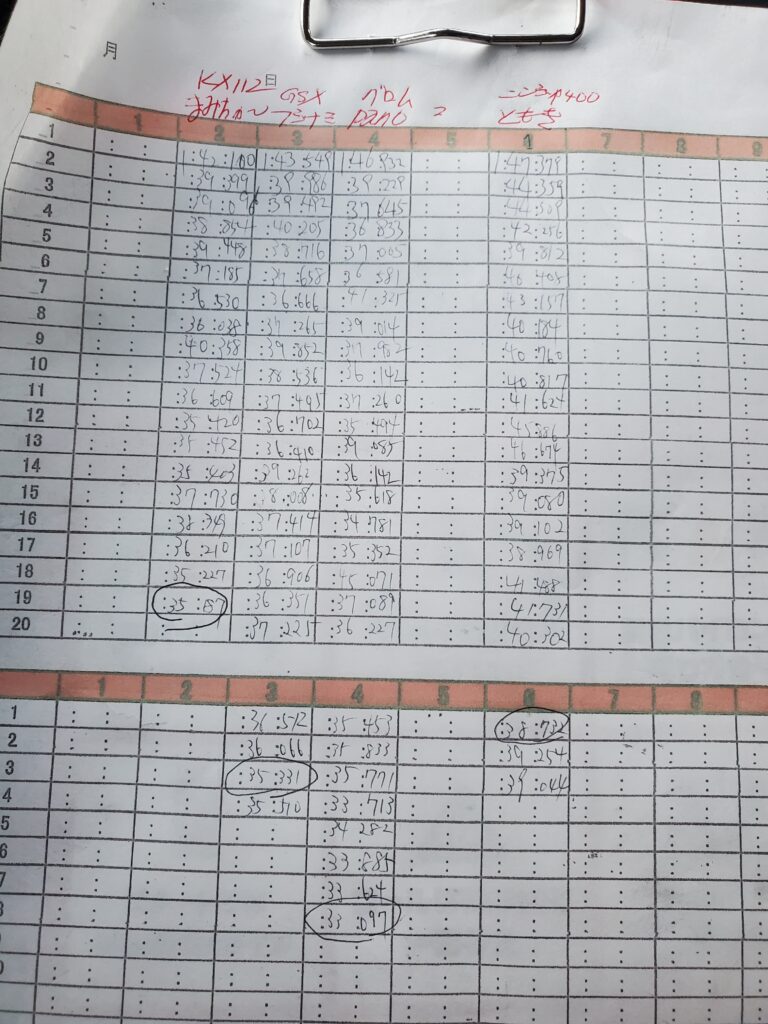 月 日
KX112 GSX グロム ニンジャ400
まみちゃ〜 フジナミ PZNO 2 ともき
1 2 3 4 5 1 7 8 9
1 1:42:100 1:43:549 1:46 932 1:47:379
2 :39 :399 :39 :986 :39 :229 :44:359
3 :39 :096 :39 :492 :37 :645 :44:509
4 :38 :854 :40:205 :36 833 :42:256
5 :39 :448 :38 :716 :37 :005 :39 :812
6 :37 :185 :37 :658 :36 :581 :40 :405
7 :36 :530 :36 :666 :41 :325 :43 :157
8 :36 :038 :37 :265 :39 :014 :40 :184
9 :40 :358 :39 :852 :37 :982 :40 :760
10 :37 :524 :38 :536 :36 :142 :40 :817
11 :36 :609 :37 :495 :37 :260 :41 :624
12 :35 :420 :36 :702 :35 :494
13 :35 :452 :36 :410 :39 :085 :46 :674
14 :35 :403 :39 :262 :36 :142 :39 :375
15 :37 :730 :35 :618 :39 :080
16 :38 :349 :37 :414 :34 :781 :39 :102
17 :36 :210 :37 :107 :35 :352 :38 :969
18 :35 :227 :36 :906 :45 :071 :41 :488
19 :35 :187 :36 :351 :37 :089 :41 :731
20 :37 :225 :36 :227 :40 :302
1 2 3 4 5 6 7 8
1 :36 :572 :35 :453 :38 :732
2 :36 :066 :35 :833 :39 :254
3 :35 :331 :35 :771 :39 :044
4 :35 :570 :33 :713
5 :34 282
6 :33 :885
7 :33 :624
8 :33 :097